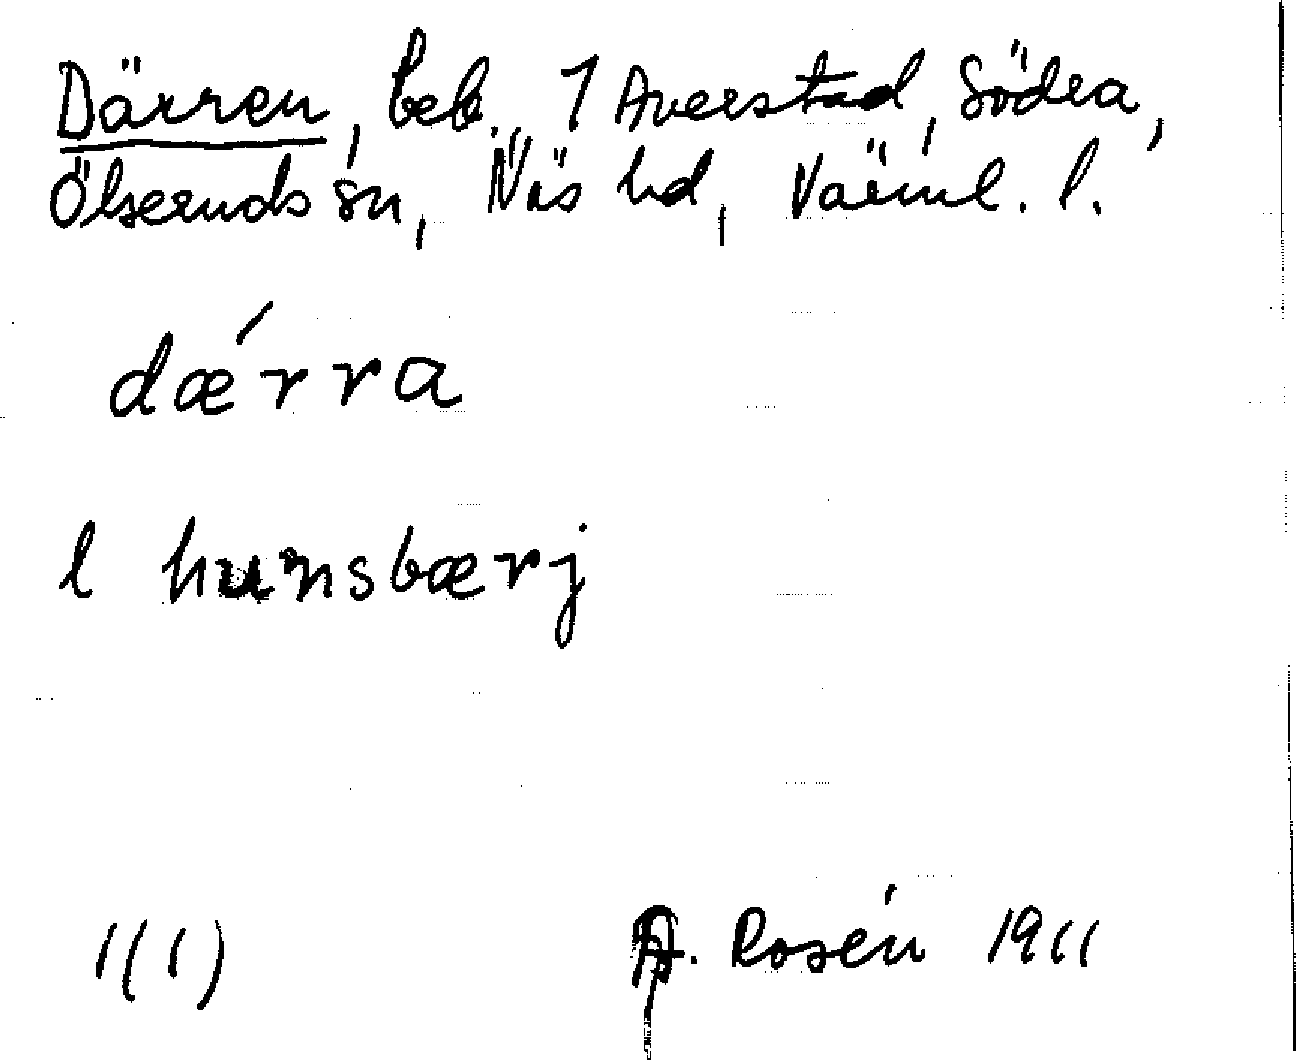 Därren, beb. 1 Averstad, Södra,
Ölseruds sn, Näs hd, Värml. l.
dǽrra
l hunsbærj
1(1)
A. Rosén 1911